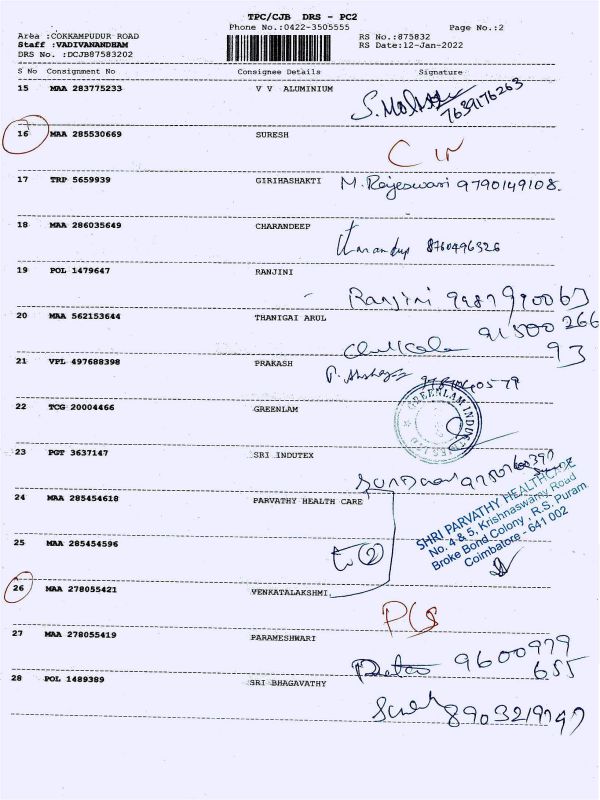 TPC/CJB DRS - PC2
Phone No.:0422-3505555 Page No.:2
Area :COKKAMPUDUR ROAD RS No.:875832
Staff :VADIVANANDHAM RS Date:12-Jan-2022
DRS No. :DCJB87583202
S No Consignment No Consignee Details Signature
15 MAA 283775233 V V ALUMINIUM
7639176263
16 MAA 285530669 SURESH
17 TRP 5659939 GIRIHASHAKTI M. Rajeswari 9790149108.
18 MAA 286035649 CHARANDEEP
8760496326
19 POL 1479647 RANJINI
Ranjini
20 MAA 562153644 THANIGAI ARUL
21 VPL 497688398 PRAKASH
22 TCG 20004466 GREENLAM
GREENLAM INDUSTRIES LTD
23 PGT 3637147 SRI INDUTEX
24 MAA 285454618 PARVATHY HEALTH CARE
SHRI PARVATHY HEALTHCARE
No. 4 & 5, Krishnaswamy Road
Broke Bond Colony, R.S. Puram
Coimbatore - 641 002
25 MAA 285454596
2
26 MAA 278055421 VENKATALAKSHMI
27 MAA 278055419 PARAMESHWARI
9600979
655
28 POL 1489389 SRI BHAGAVATHY